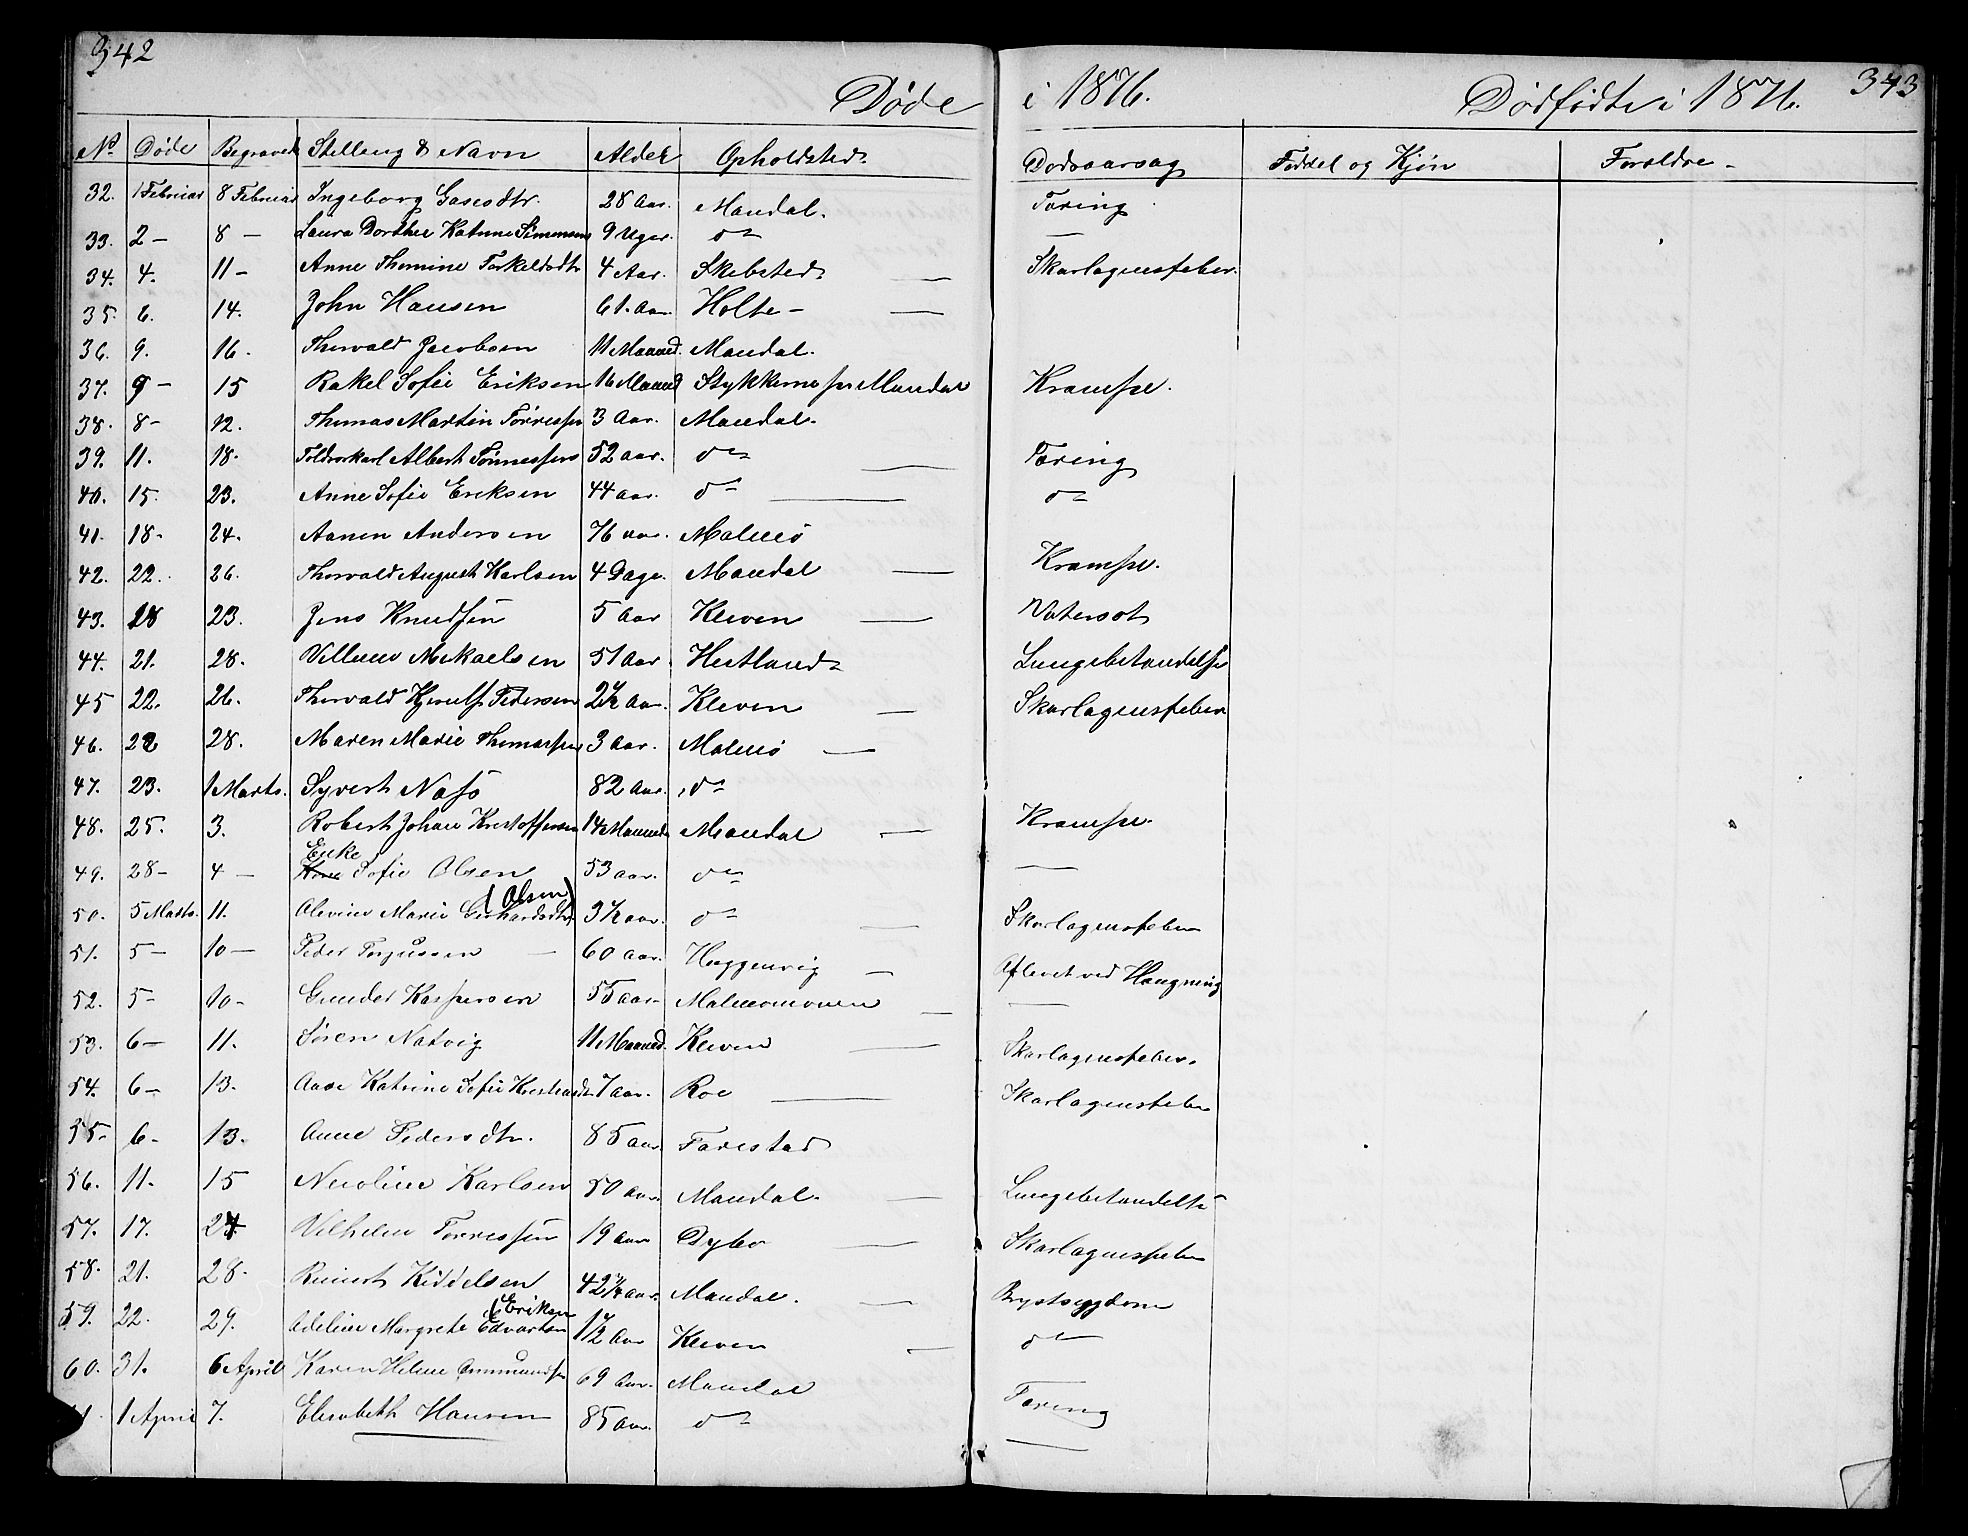 342
Døde i 1876. Dødfødte i 1876. 343
No. Døde Begravede Stilling & Navn Alder Opholdsted. Dødsaarsag Fødsel og Kjøn Forældre
32. 1 Februar 8 Februar Ingeborg 28 Aar. Mandal. Tæring
33. 2 — 8 — Laura Dorthee Katrine Simonsen 9 Uger. do —
34. 4. 11 — Anne Thomine Torkeldsdtr 4 Aar. Skibsted — Skarlagensfeber.
35. 6. 14. John Hansen 61. Aar Holte — —
36. 9. 16. Thorvald Jacobsen 11 Maaned. Mandal.
37. 9 — 15 Rakel Sofie Eriksen 16 Maaned Mandal Krampe.
38. 8 — 12. Thomas Martin Tørressen 3 Aar. Mandal.
39. 11. 18. Albert Tønnessen 52 aar. do — Tæring
40. 15. 23. Anne Sofie Eriksen 44 aar. do — do
41. 18. 24. Aanen Andersen 76 aar. Malmø
42. 22. 26. Thorvald August Karlsen 4 Dage. Mandal — Krampe.
43. 18 23. Jens Knudsen 5 Aar Kleven — Vatersot
44. 21. 28. Villum Mikaelsen 51 Aar Hestland Lungebetændelse
45 22. 26. Thorvald Pedersen 2½ Aar. Kleven — Skarlagensfeber
46. 22 28. Maren Marie Thomassen 3 Aar. Malmø —
47. 23. 1 Marts. Syvert Næss 82 Aar. do
48. 25. 3. Robert Johan Kristoffersen 14 Maaned Mandal — Krampe.
49. 28 — 4 — Enke Sofie Olsen 53 aar. do —
50. 5 Marts. 11. Olevine Marie Gerhardsdtr (Olsen) 3½ aar. do — Skarlagensfeber
51. 5 — 10 — Peder Torjussen — 60 aar. Haggenvig — Aflivet ved Hængning
52. 5 — 10 — Gunder Kaspersen 55 aar — Malmømonen — —
53. 6 — 11. Søren Natvig 11 Maaned. Kleven — Skarlagensfeber.
54. 6 — 13. Aase Katrine Sofie 7 aar. Roe — Skarlagensfeber
55. 6 — 13. Anne Pedersdtr. 85 aar. Farestad
56. 11. 15 Nicoline Karlsen 50 aar. Mandal — Lungebetændelse
57. 17. 24 Vilhelm Tørressen 19 aar Dybo — Skarlagensfeber
58. 21. 28. Reinert Kiddelsen 42½ aar. Mandal. — Brystsygdom
59. 22. 29. Adeline Margrete Edvartsen (Eriksen 1½ Aar Kleven — do
60. 31. 6 April Karen Helene Ommundsen 69 Aar. Mandal Tæring
1 April 7. Elisabeth Hansen 85 Aar. do —